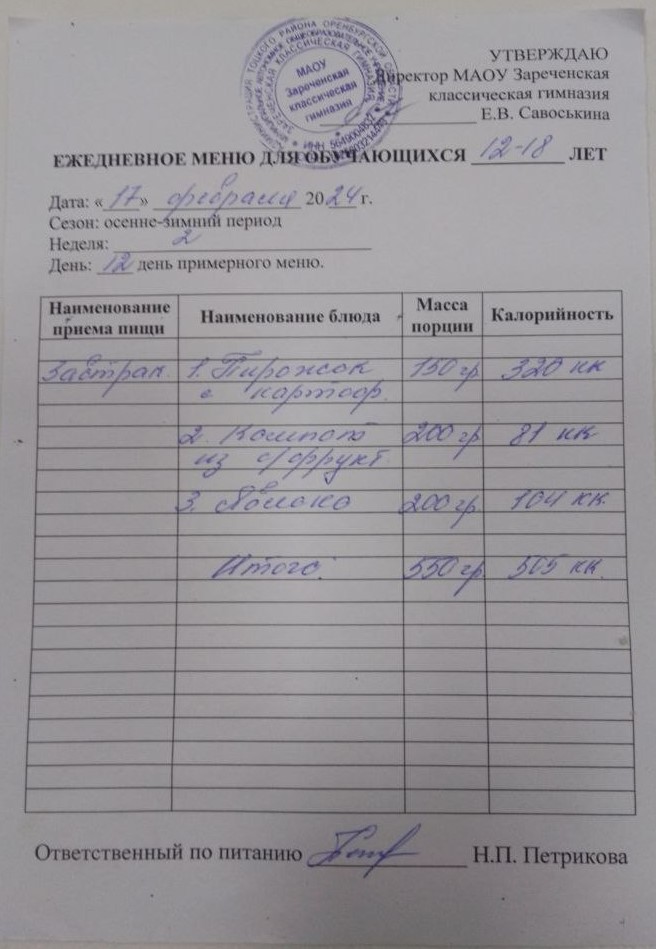 МАОУ
Зареченская
классическая
гимназия
УТВЕРЖДАЮ
Директор МАОУ Зареченская
классическая гимназия
Е.В. Савоськина
ЕЖЕДНЕВНОЕ МЕНЮ ДЛЯ ОБУЧАЮЩИХСЯ 12-18 ЛЕТ
Дата: «17» февраля 2024 г.
Сезон: осенне-зимний период
Неделя: 2
День: 12 день примерного меню.
Наименование приема пищи Наименование блюда Масса порции Калорийность
Завтрак 1. Пирожок 150 гр 320 кк
с картоф.
2. Компот 200 гр 81 кк
из с/фрукт.
3. Яблоко 200 гр 104 кк.
Итого: 550 гр 505 кк.
Ответственный по питанию Н.П. Петрикова